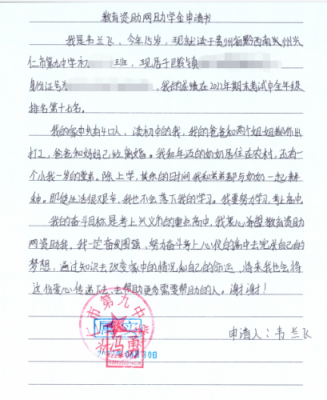 教育资助网助学金申请书
我是韦兰飞,今年15岁,现就读于贵州省黔西南州兴
仁市第九中学初 班,现居于巴铃镇
身份证号为 ,我的成绩在2022年期末考试中全年级
排名第十七名。
我的家中共有4口人,读初中的我,我的爸爸和两个姐姐都外出
打工,爸爸和妈妈已经离婚。我和年迈的奶奶居住在农村,还有一
个小我一岁的堂弟。除上学,其余的时间我和堂弟都与奶奶一起耕
种。即使生活很艰辛,我也不会落下我的学习。我要努力学习,考上高中。
我的奋斗目标是考上兴义市的重点高中,我衷心希望教育资助
网资助我,我一定奋发图强,努力奋斗考上心仪的高中去完成自己的
梦想,通过知识去改变家中的情况和自己的命运,将来我也会将
这份爱心传递下去,去帮助更多需要帮助的人。谢谢!
市第九中学
属实
申请人:韦兰飞